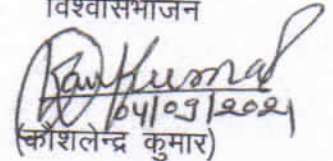 विश्वासभाजन
04/09/2021
(कौशलेन्द्र कुमार)